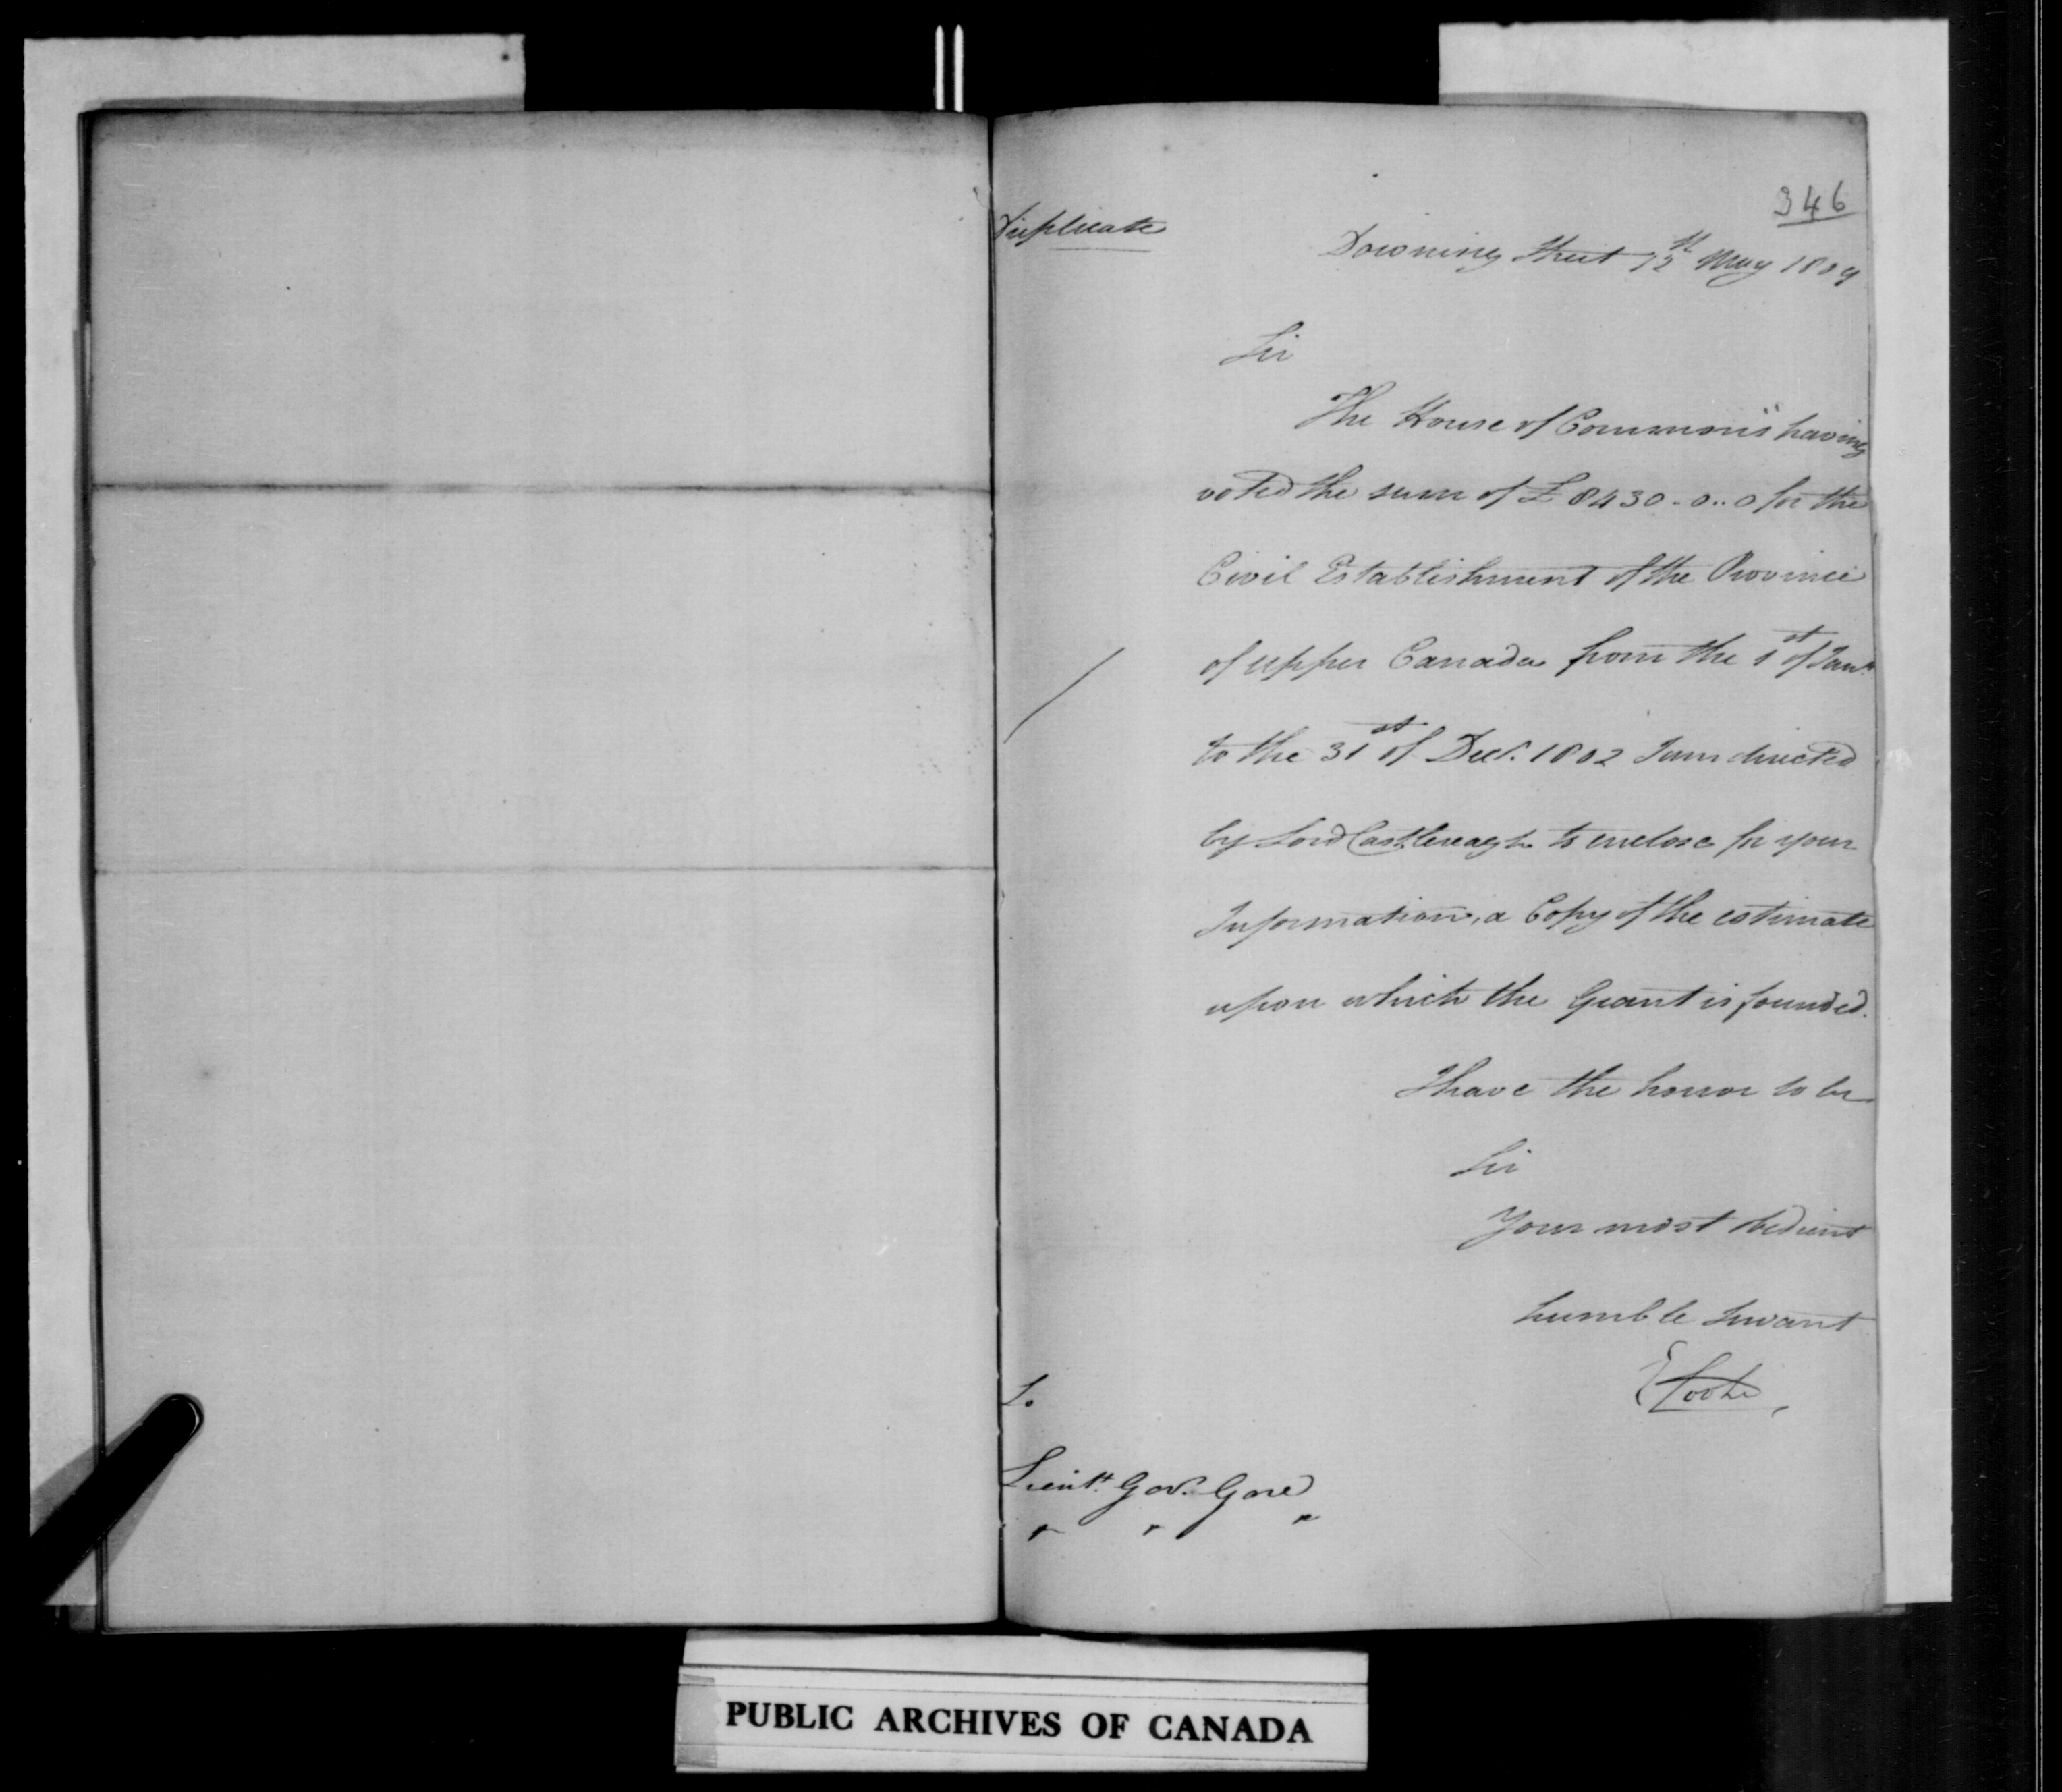 346
Duplicate
Downing Street 12th May 1809
Sir
The House of Commons having
voted the sum of £ 8430..0..0 for the
Civil Establishment of the Province
of Upper Canada from the 1st of Jany.
to the 31st of Decr. 1802 I am directed
by Lord Castlereagh to enclose for your
Information, a Copy of the estimate
upon which the Grant is founded.
I have the honor to be
Sir
Your most obedient
humble Servant
E Cooke
To
Lieutt. Govr. Gore
PUBLIC ARCHIVES OF CANADA